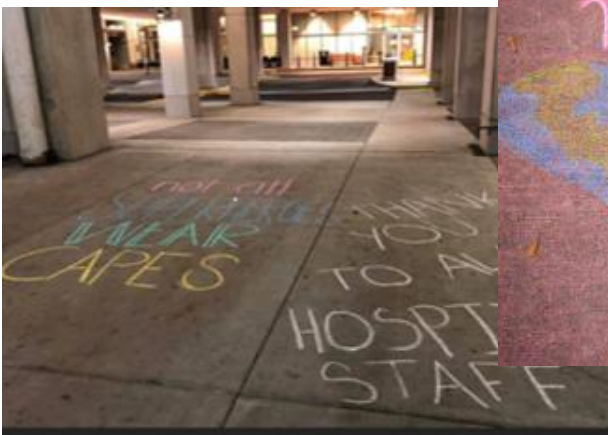 not all
SUPERHEROES
WEAR
CAPES
THANK
YOU
TO AL
HOSPIT
STAFF